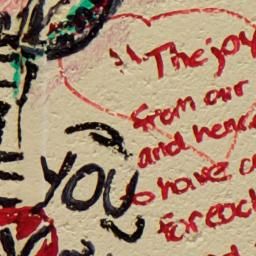 "The joy
from our
and hear
to have
for each
YOU